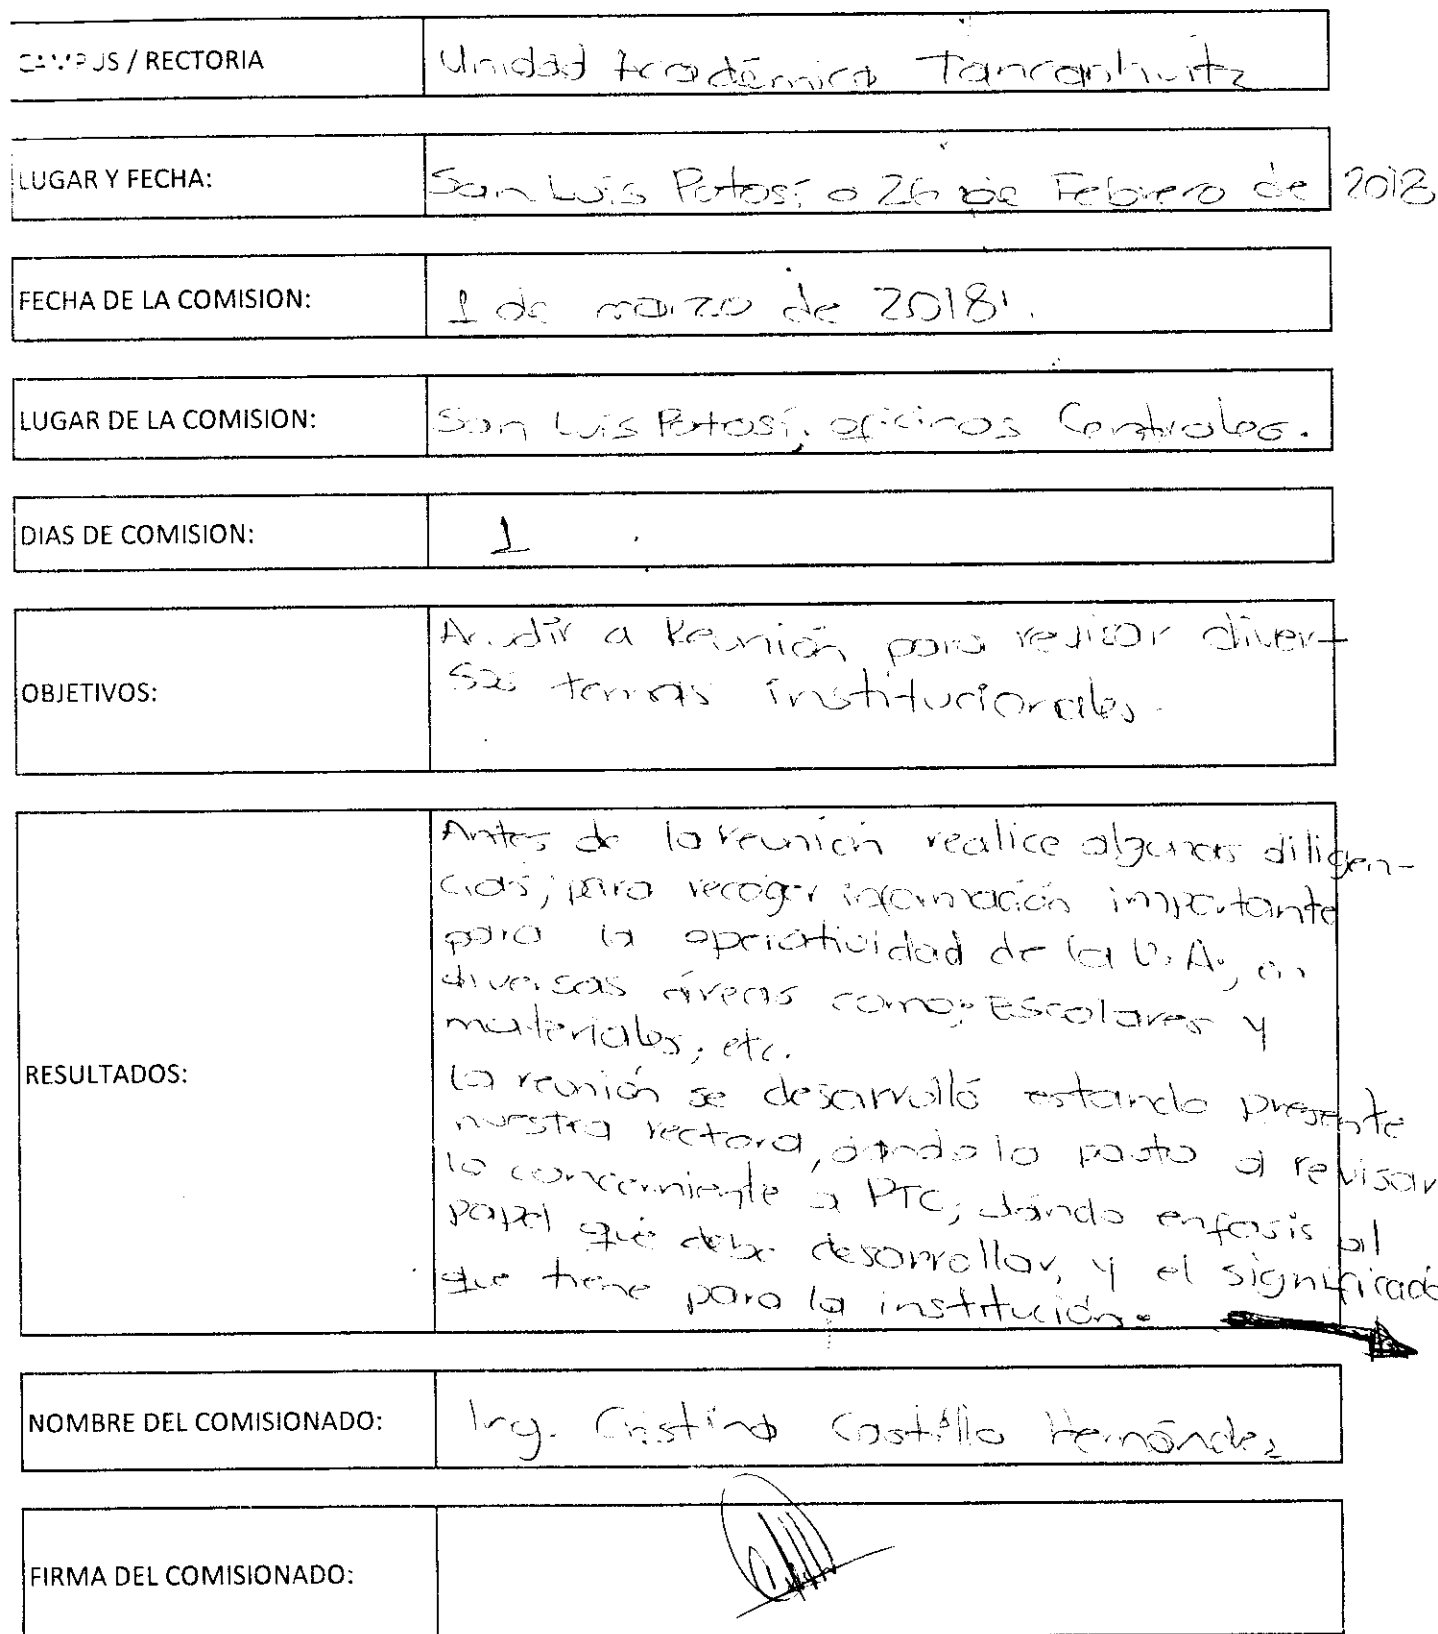 CAMPUS / RECTORIA Unidad Académica Tancanhuitz
LUGAR Y FECHA: San Luis Potosí a 26 de Febrero de 2018
FECHA DE LA COMISION: 1 de marzo de 2018.
LUGAR DE LA COMISION: San Luis Potosí, oficinas Centrales.
DIAS DE COMISION: 1
OBJETIVOS:
Acudir a Reunión para revisar diver-
sas temas institucionales.
RESULTADOS:
Antes de la reunión realice algunas diligen-
cias, para recoger información importante
para la operatividad de la U.A, en
diversas áreas como: Escolares y
materiales, etc.
La reunión se desarrolló estando presente
nuestra rectora, dando la pauta a revisar
lo concerniente a PTC, dando enfasis al
papel que debe desarrollar, y el significado
que tiene para la institución.
NOMBRE DEL COMISIONADO: Ing. Cristina Castillo Hernández
FIRMA DEL COMISIONADO: